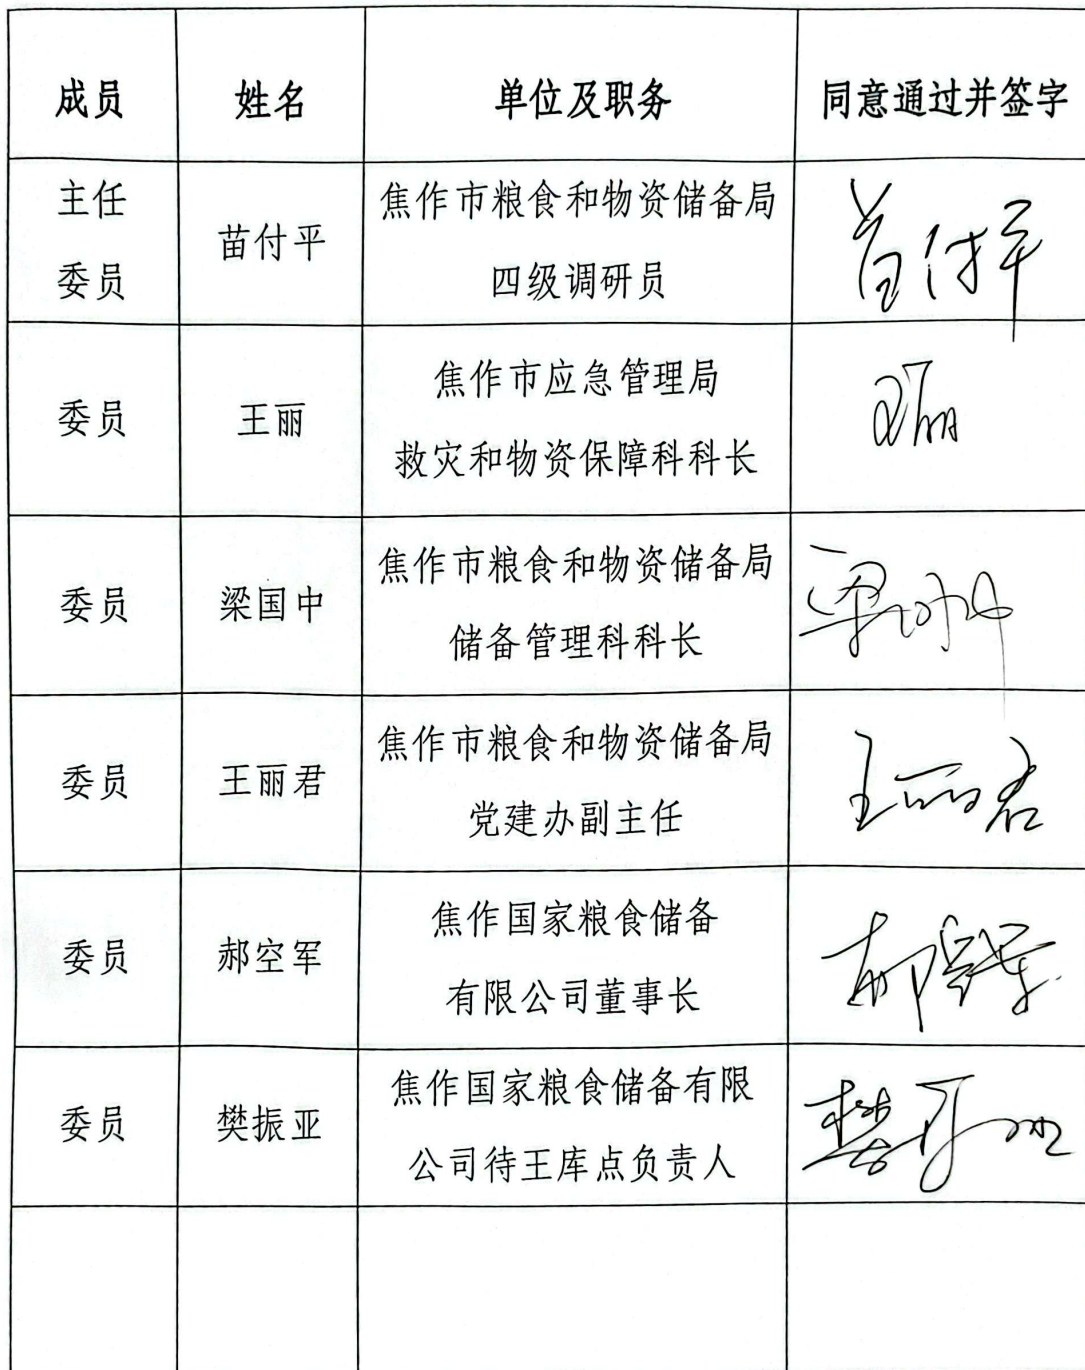 成员 姓名 单位及职务 同意通过并签字
主任
委员
苗付平
焦作市粮食和物资储备局
四级调研员
苗付平
委员
王丽
焦作市应急管理局
救灾和物资保障科科长
王丽
委员
梁国中
焦作市粮食和物资储备局
储备管理科科长
梁国中
委员
王丽君
焦作市粮食和物资储备局
党建办副主任
王丽君
委员
郝空军
焦作国家粮食储备
有限公司董事长
郝空军
委员
樊振亚
焦作国家粮食储备有限
公司待王库点负责人
樊振亚